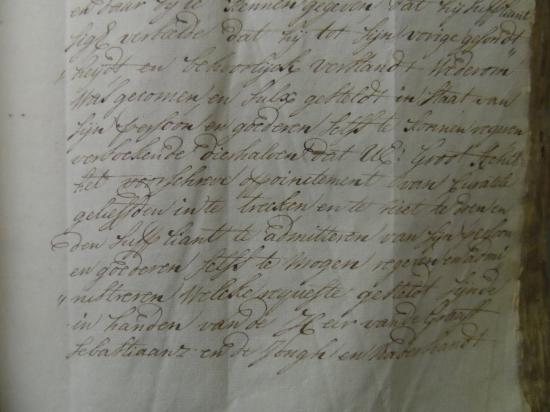 en daar bij te kennen gegeven dat hij Suppliant
sig verbeelde dat hij tot sijn vorige gesond
heijdt en behoorlijck verstandt wederom
was gecomen en sulx gestelt in staat van
sijn persoon en goederen selfs te konnen regeren
versoekende dierhalven dat UE: Groot Achtb
het voorschreve appoinctement van Curatele
geliefden in te trecken en te niet te doen en
den Suppliant te admitteren van sijn persoon
en goederen selfs te mogen regeren en admi
nistreren welcke requeste gestelt sijnde
in handen van de Heer van de Graaf
Sebastiaanz en de Jongh en